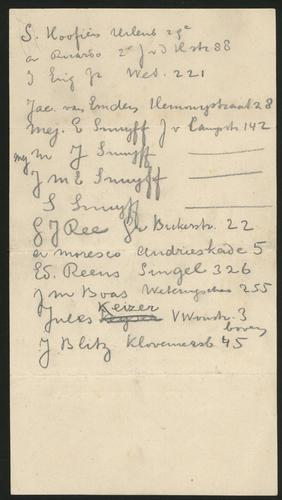 S. Hoofiën Urlens 29a
A Ricardo 2e J v d H str 88
J Erig Jr Wet. 221
Jac. van Emden Hemonystraat 28
mej. E Snuyff J v Campstr. 142
mej m J Snuyff
J M E Snuyff
S Snuyff
G J Ree Gr Bickerstr. 22
A moresco Andrieskade 5
Ed. Reens Singel 326
J m Boas Weteringschans 255
Jules Keizer V Woustr. 3
boven
J. Blitz Kloveniersb 45